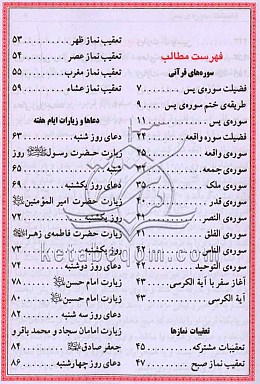 فهرست مطالب
سوره‌های قرآنی
فضیلت سوره‌ی یس ........ ۷
طریقه‌ی ختم سوره‌ی یس .. ۹
سوره‌ی یس ............ ۱۱
فضیلت سوره واقعه ...... ۲۴
سوره‌ی واقعه .......... ۲۵
سوره‌ی جمعه
سوره‌ی ملک .......... ۳۵
سوره‌ی قدر ........... ۴۰
سوره‌ی النصر ......... ۴۱
سوره‌ی الفلق ......... ۴۱
سوره‌ی الناس ......... ۴۲
سوره‌ی التوحید ........ ۴۲
آغاز سفر با آیة الکرسی .. ۴۳
آیة الکرسی ........... ۴۳
تعقیبات نمازها
تعقیبات مشترکه ....... ۴۵
تعقیب نماز صبح ........ ۴۷
تعقیب نماز ظهر ........ ۵۳
تعقیب نماز عصر ........ ۵۴
تعقیب نماز مغرب ....... ۵۵
تعقیب نماز عشاء ....... ۵۹
دعاها و زیارات ایام هفته
دعای روز شنبه ......... ۶۳
زیارت حضرت رسول ﷺ روز
شنبه ............... ۶۵
دعای روز یکشنبه ....... ۶۹
زیارت حضرت امیر المؤمنین
روز یکشنبه .......... ۷۲
زیارت حضرت فاطمه‌ی زهرا
روز یکشنبه .......... ۷۳
دعای روز دوشنبه ....... ۷۴
زیارت امام حسن ........ ۷۸
زیارت امام حسین ....... ۸۰
دعای روز سه شنبه ...... ۸۲
زیارت امامان سجاد و محمد باقر و
جعفر صادق ........... ۸۴
دعای روز چهارشنبه ..... ۸۶
ketabeqom.com